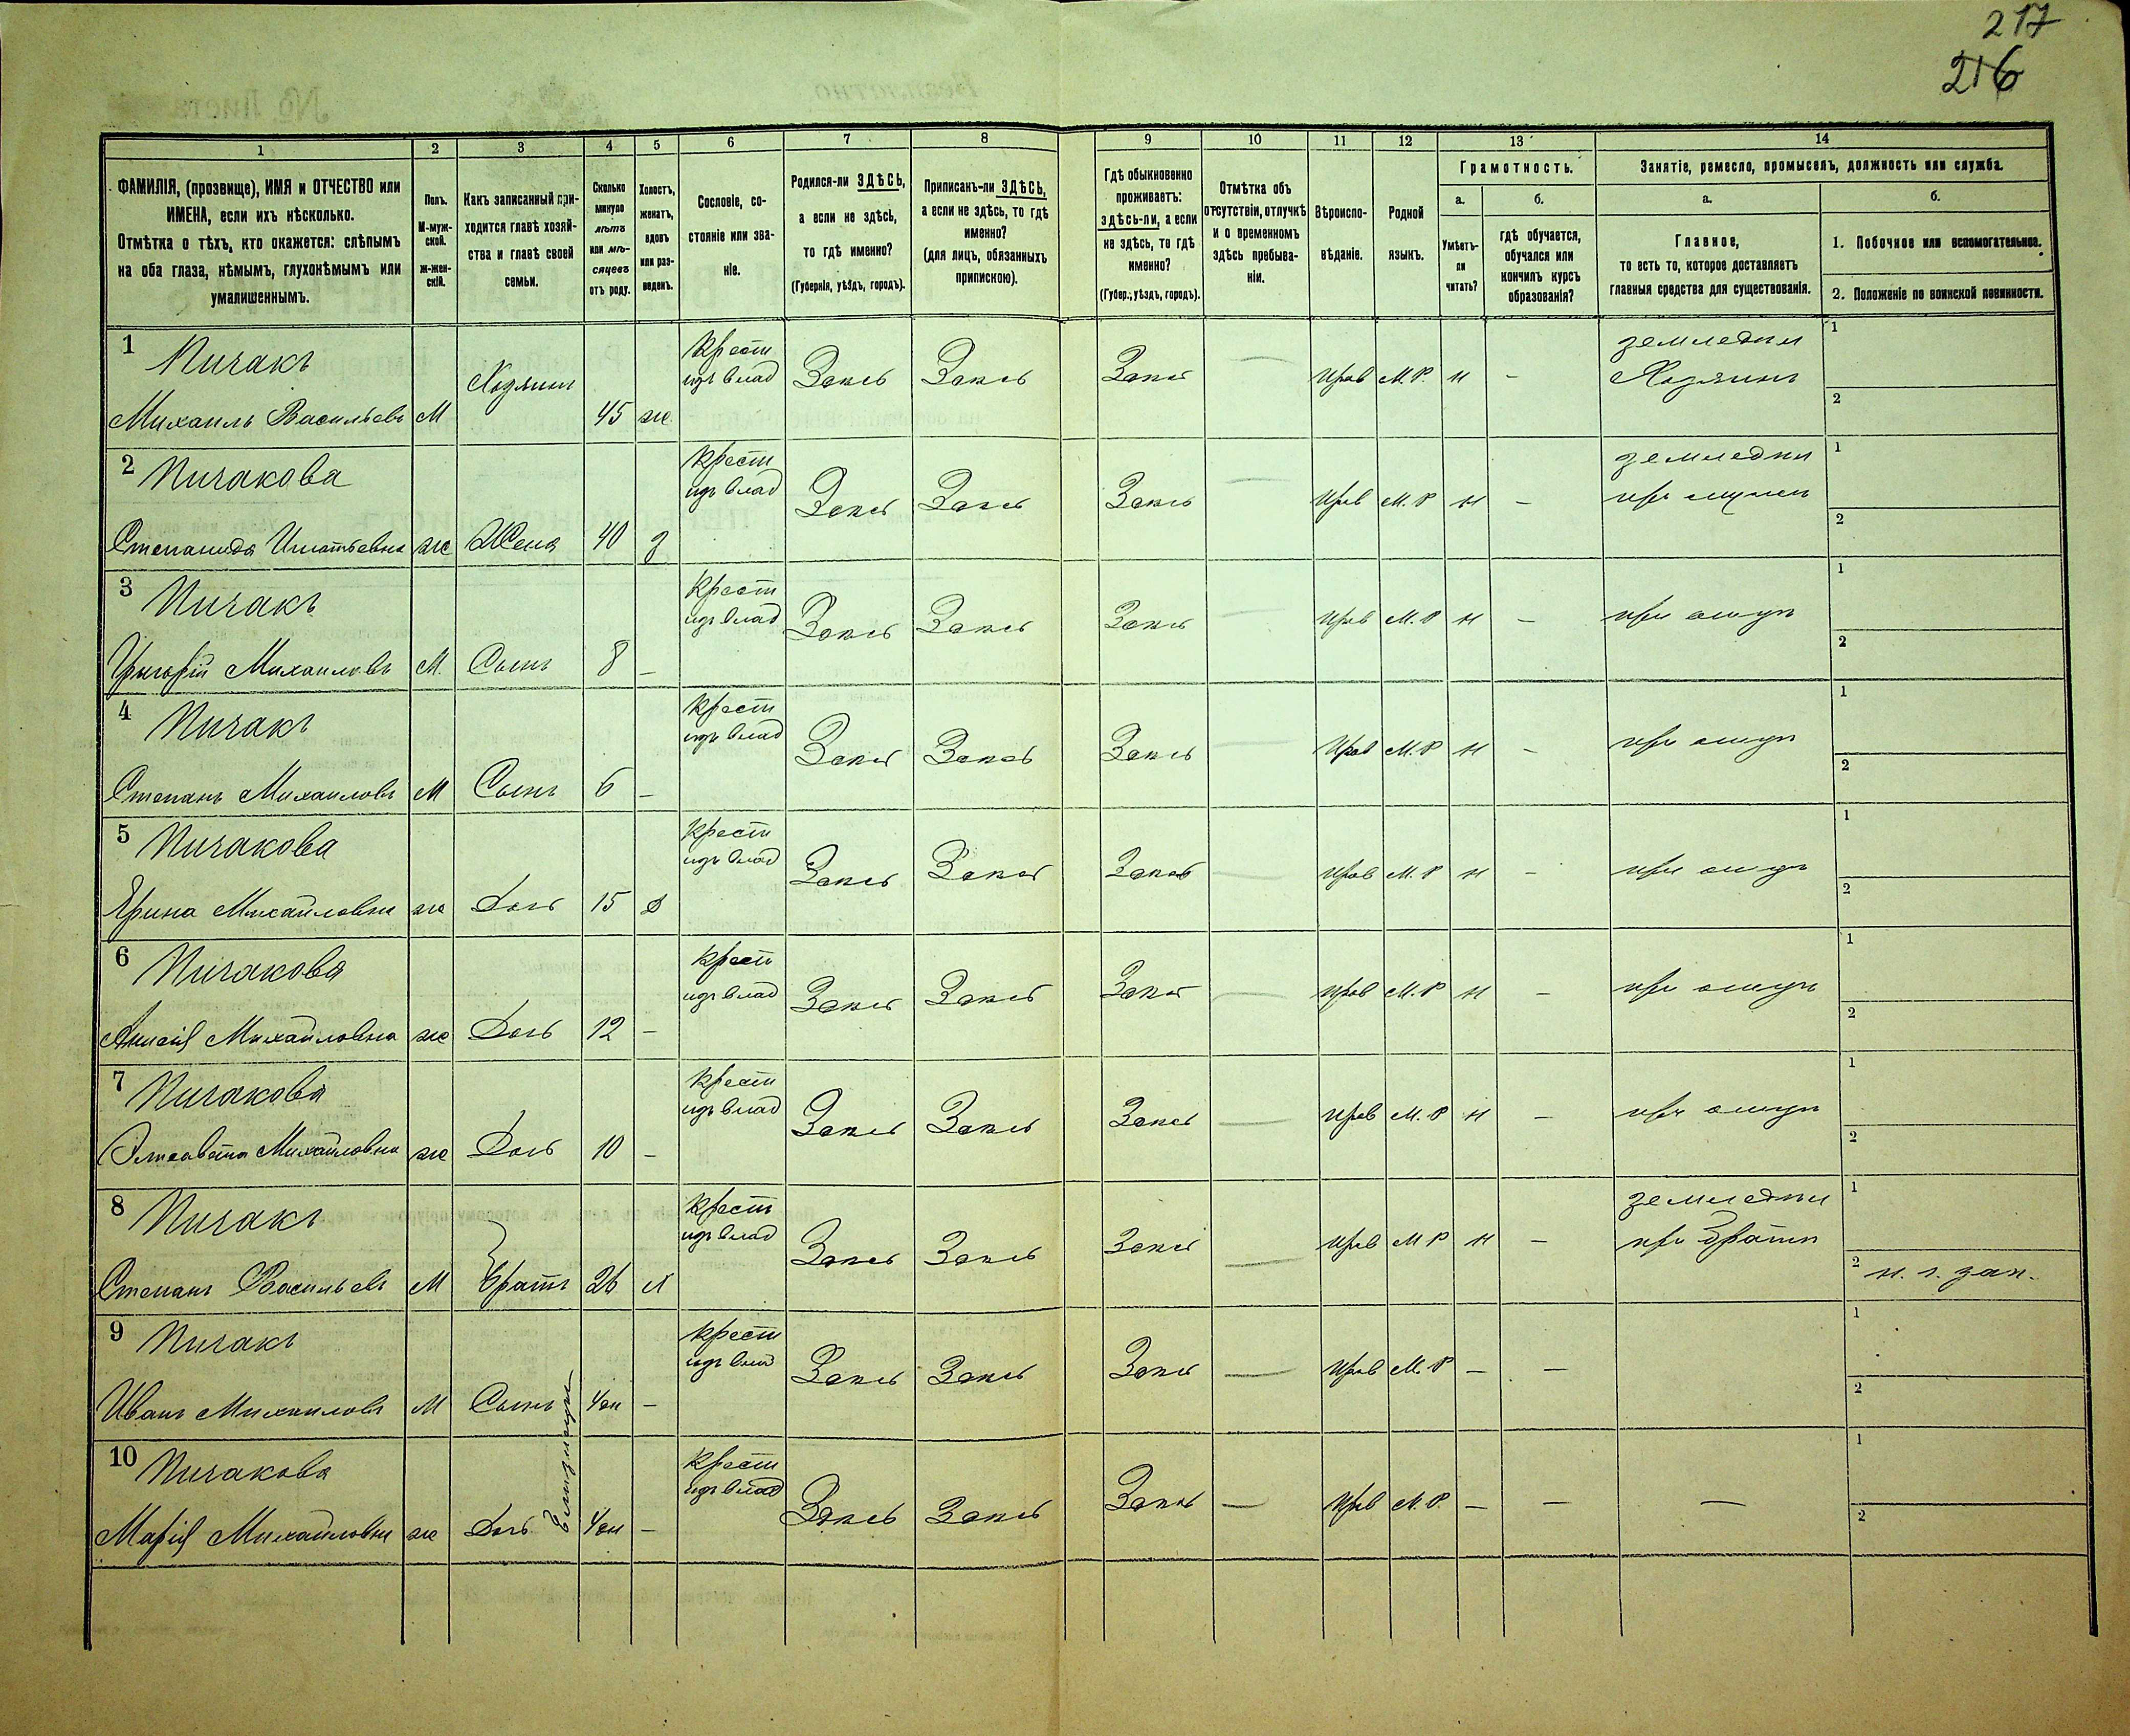 217
216
1
2
3
4
5
6
7
8
9
10
11
12
13
14
ФАМИЛІЯ, (прозвище), ИМЯ и ОТЧЕСТВО или
ИМЕНА, если ихъ нѣсколько.
Отмѣтка о тѣхъ, кто окажется: слѣпымъ
на оба глаза, нѣмымъ, глухонѣмымъ или
умалишеннымъ.
Полъ.
М-муж-
ской.
ж-жен-
скій.
Какъ записанный при-
ходится главѣ хозяй-
ства и главѣ своей
семьи.
Сколько
минуло
лѣтъ
или мѣ-
сяцевъ
отъ роду.
Холостъ,
женатъ,
вдовъ
или раз-
веденъ.
Сословіе, со-
стояніе или зва-
ніе.
Родился-ли ЗДѢСЬ,
а если не здѣсь,
то гдѣ именно?
(Губернія, уѣздъ, городъ).
Приписанъ-ли ЗДѢСЬ,
а если не здѣсь, то гдѣ
именно?
(для лицъ, обязанныхъ
припискою).
Гдѣ обыкновенно
проживаетъ:
здѣсь-ли, а если
не здѣсь, то гдѣ
именно?
(Губер., уѣздъ, городъ).
Отмѣтка объ
отсутствіи, отлучкѣ
и о временномъ
здѣсь пребыва-
ніи.
Вѣроиспо-
вѣданіе.
Родной
языкъ.
Грамотность.
а.
Умѣетъ-
ли
читать?
б.
гдѣ обучается,
обучался или
кончилъ курсъ
образованія?
Занятіе, ремесло, промыселъ, должность или служба.
а.
Главное,
то есть то, которое доставляетъ
главныя средства для существованія.
б.
1. Побочное или вспомогательное.
2. Положеніе по воинской повинности.
1 Пичакъ
Михаилъ Васильевъ М Хозяинъ 45 ж
Крест
изъ влад Здесь Здесь Здесь — Прав М.Р. н —
земледел
Хозяинъ
1
2
2 Пичакова
Степанида Игнатьевна ж Жена 40 з
Крест
изъ влад Здесь Здесь Здесь — Прав М.Р н —
земледел
при мужен
1
2
3 Пичакъ
Григорій Михаиловъ М. Сынъ 8 —
Крест
изъ влад Здесь Здесь Здесь — Прав М.Р н —
при отцѣ
1
2
4 Пичакъ
Степанъ Михаиловъ М Сынъ 6 —
Крест
изъ влад Здесь Здесь Здесь — Прав М.Р н —
при отцѣ
1
2
5 Пичакова
Ярина Михайловна ж Дочь 15 д
Крест
изъ влад Здесь Здесь Здесь — Прав М.Р н —
при отцѣ
1
2
6 Пичакова
Михайловна ж Дочь 12 —
Крест
изъ влад Здесь Здесь Здесь — Прав М.Р н —
при отцѣ
1
2
7 Пичакова
Елисавета Михайловна ж Дочь 10 —
Крест
изъ влад Здесь Здесь Здесь — Прав М.Р н —
при отцѣ
1
2
8 Пичакъ
Степанъ Васильевъ М Братъ 26 х
Крест
изъ влад Здесь Здесь Здесь — Прав М Р н —
земледел
при братѣ
1
2 н. г. зап.
9 Пичакъ
Иванъ Михаиловъ М Сынъ —
Крест
изъ влад Здесь Здесь Здесь — Прав М.Р — —
1
2
10 Пичакова
Марія Михайловна ж Дочь —
Близнецы
Крест
изъ влад Здесь Здесь Здесь — Прав М.Р. — — —
1
2